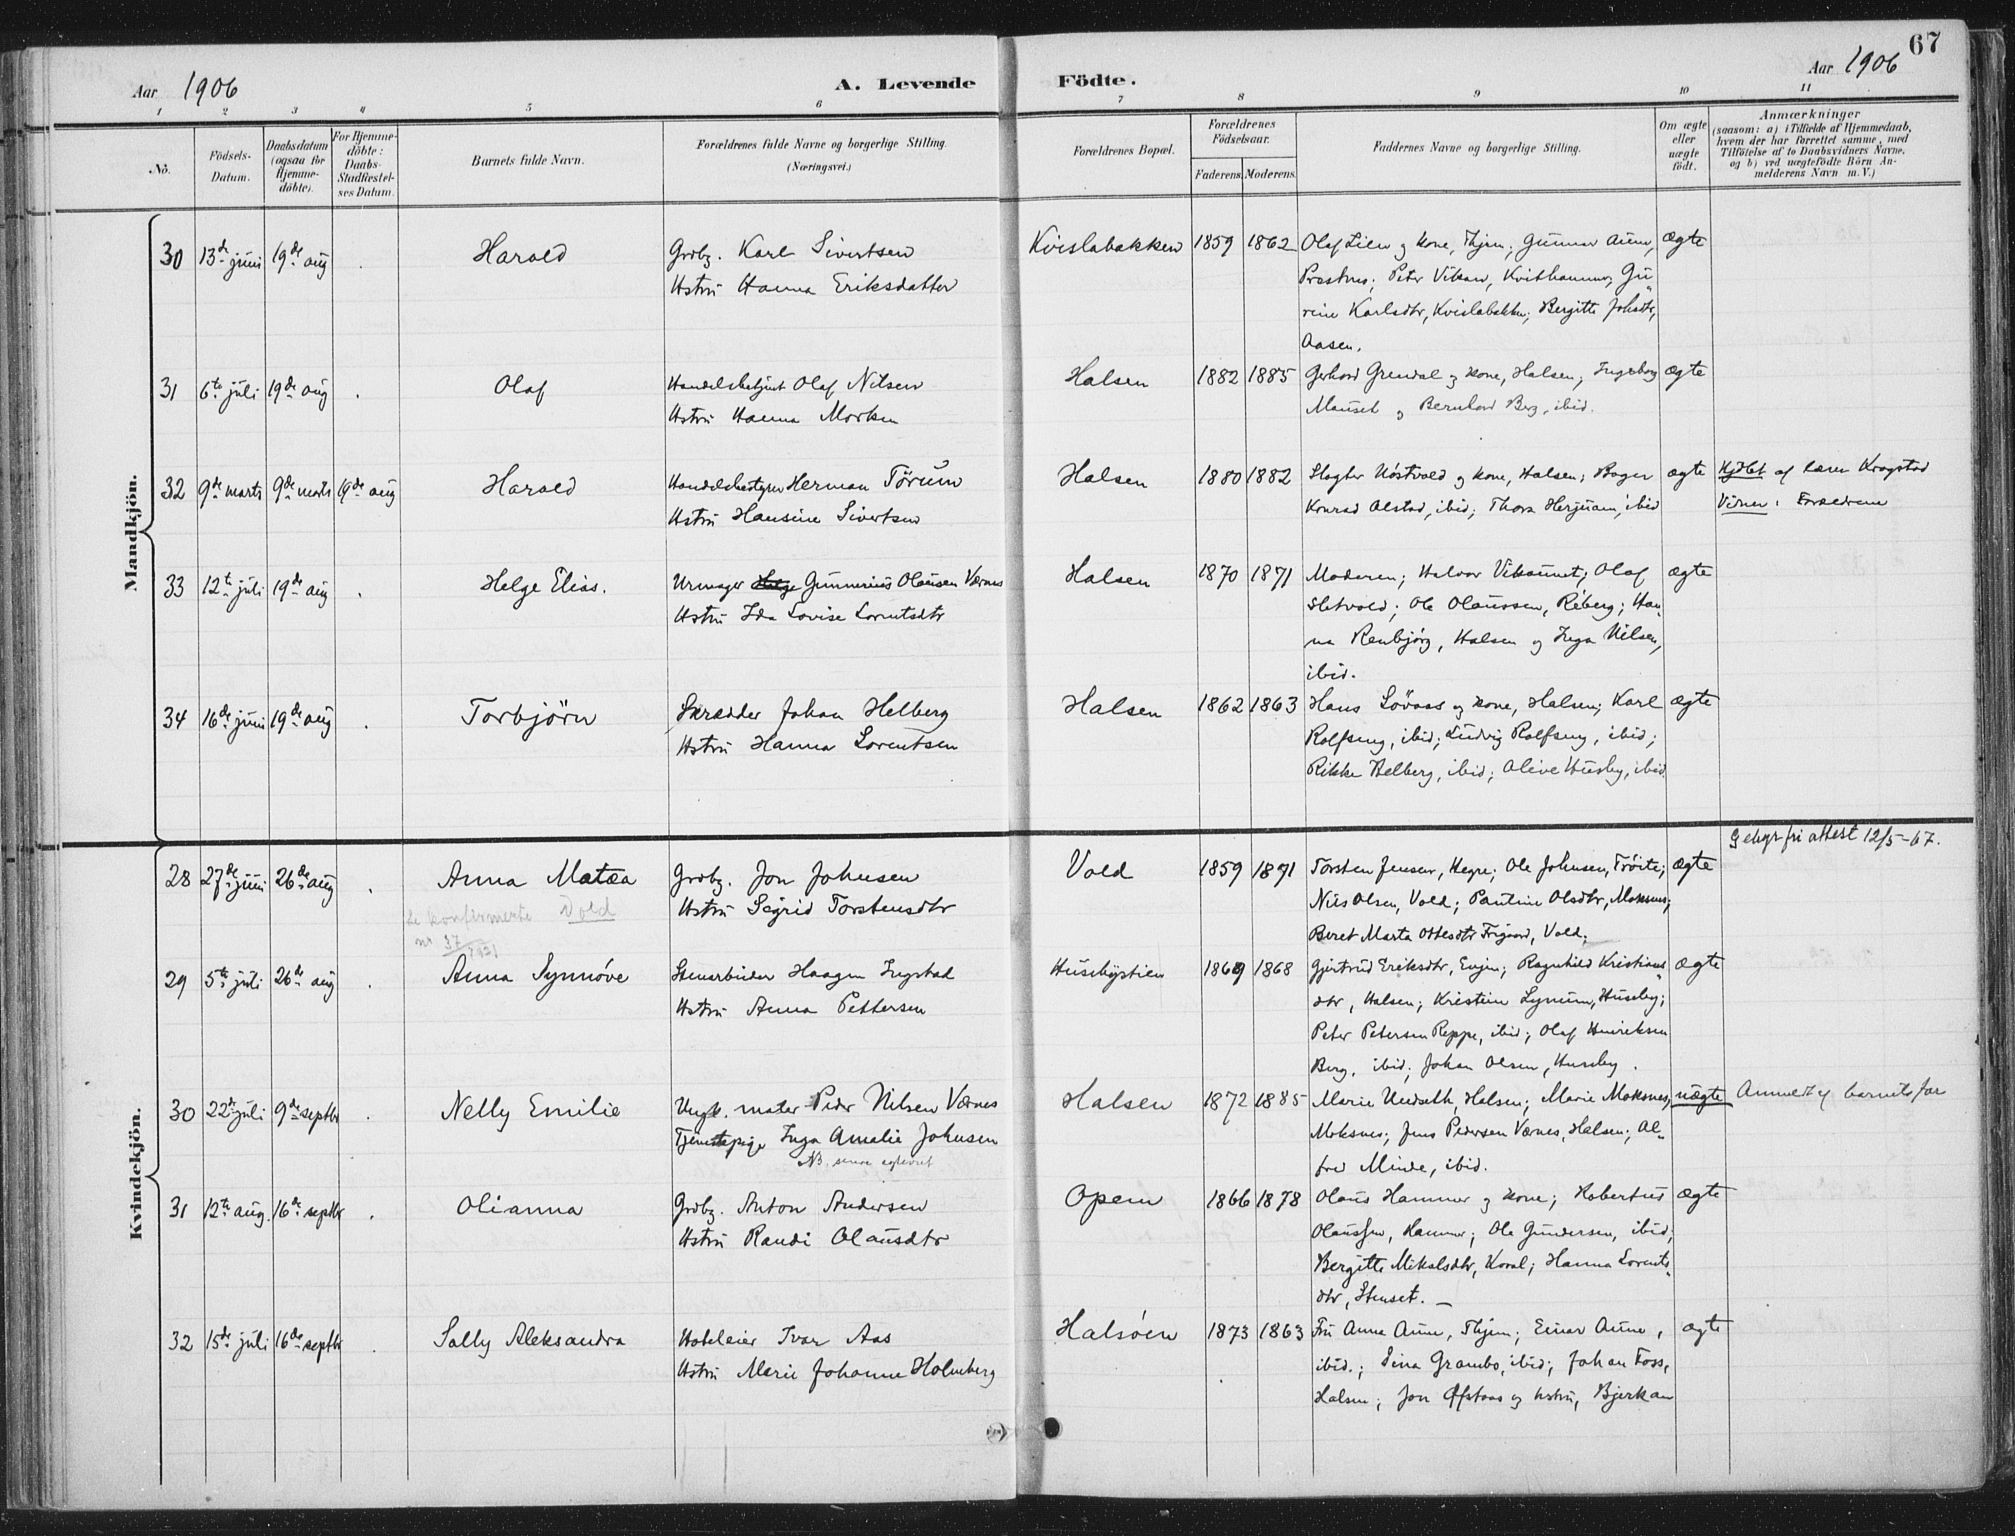 67
Aar 1906
A. Levende Födte.
Aar 1906
1 2 3 4 5 6 7 8 9 10 11
No.
Födsels-
Datum.
Daabsdatum
(ogsaa for
Hjemme-
döbte).
For Hjemme-
döbte:
Daabs-
Stadfæstel-
ses Datum.
Barnets fulde Navn.
Forældrenes fulde Navne og borgerlige Stilling.
(Næringsvei.)
Forældrenes Bopæl.
Forældrenes
Födselsaar.
Faderens. Moderens.
Faddernes Navne og borgerlige Stilling.
Om ægte
eller
uægte
födt.
Anmærkninger
(saasom: a) i Tilfælde af Hjemmedaab,
hvem der har forrettet samme, med
Tilföielse af to Daabsvidners Navne,
og b) ved uægtefödte Börn An-
melderens Navn m. V.)
Mandkjön.
30 13de juni 19de aug Harald
Grdbr. Karl Sivertsen
Hstru Hanna Eriksdatter
Kvislabakken 1859 1862
Olaf Lien og kone, Thjem; Gunnar Aune,
Prestmo; Peter Vikan, Kvithammer, Gu-
rine Karlsdtr, Kvislabakken; Bergitte Johsdtr,
Aasen.
ægte
31 6te juli 19de aug Olaf
Handelsbetjent Olaf Nilsen
Hstru Hanna Morken
Halsen 1882 1885
Gerhard Grendal og kone, Halsen; Ingeborg
Mauset og Bernhard Berg, ibid.
ægte
32 9de marts 9de marts 19de aug Harald
Handelsbestyrer Herman Tørum
Hstru Hansine Sivertsen
Halsen 1880 1882
Slagter Røstvold og kone, Halsen; Bager
Konrad Alstad, ibid; Thora Herjuam, ibid
ægte
Hjdbt af lærer Kragstad
Vidner: Forældrene
33 12te juli 19de aug Helge Elias.
Urmager Gunnerius Olausen Værnes
Hstru Ida Lovise Lorntsdtr
Halsen 1870 1871
Moderen; Halvor Vikaunet; Olaf
Sletvold; Ole Olaussen, Réberg; Han-
na Renbjørg, Halsen og Inga Nilsen,
ibid.
ægte
34 16de juni 19de aug Torbjörn
Skrædder Johan Helberg
Hstru Hanna Lorentsen
Halsen 1862 1863
Hans Lövaas og kone, Halsen; Karl
Rolfseng, ibid; Ludvig Rolfseng, ibid;
Rikke Helberg, ibid; Olive Husby, ibid
ægte
Kvindekjön.
28 27de juni 26de aug Anna Matæa
Se konfirmerte Vold
nr 37/1921
Grdbr. Jon Johnsen
Hstru Sigrid Torstensdtr
Vold 1859 1871
Torsten Jensen, Hegre; Ole Johnsen, Trøite;
Nils Olsen, Vold; Pauline Olsdtr, Moksnes;
Beret Marta Ottesdtr Trigaard, Vold;
ægte
Gebyrfri attest 12/5-67.
29 5te juli 26de aug Anna Synnóve
Stenarbeider Haagen Ingstad
Hstru Anna Pettersen
Husebystien 1869 1868
Gjertrud Eriksdtr, Evjen; Ragnhild Kristians-
dtr, Halsen; Kristine Lynum, Huseby;
Peter Petersen Reppe, ibid; Olaf Henriksen
Berg, ibid; Johan Olsen, Huseby.
ægte
30 22de juli 9de septbr Nelly Emilie
Ungk. maler Peder Nilsen Værnes
Tjenestepige Inga Amalie Johnsen
NB. senere egteviet
Halsen 1872 1885
Marie Undseth, Halsen; Marie Moksnes,
Moksnes; Jens Pedersen Værnes, Halsen; Al-
fred Minde, ibid.
uægte
Anmeldt af barnets far
31 12te aug. 16de septbr Olianna
Grdbr. Anton Andersen
Hstru Randi Olausdtr
Opem 1866 1878
Olaus Hammer og kone; Hobertus
Olaussen, Hammer; Ole Gundersen, ibid;
Bergitte Mikalsdtr, Koral; Hanna Lorents-
dtr, Stenset. —
ægte
32 15de juli 16de septbr Sally Aleksandra
Hoteleier Ivar Aas
Hstru Marie Johanne Holmberg
Halsöen 1873 1863
Fru Anna Aune, Thjem; Einar Aune,
ibid.; Sina Grambo, ibid; Johan Foss,
Halsen; Jon Öfstaas og hstru, Bjerkan
ægte